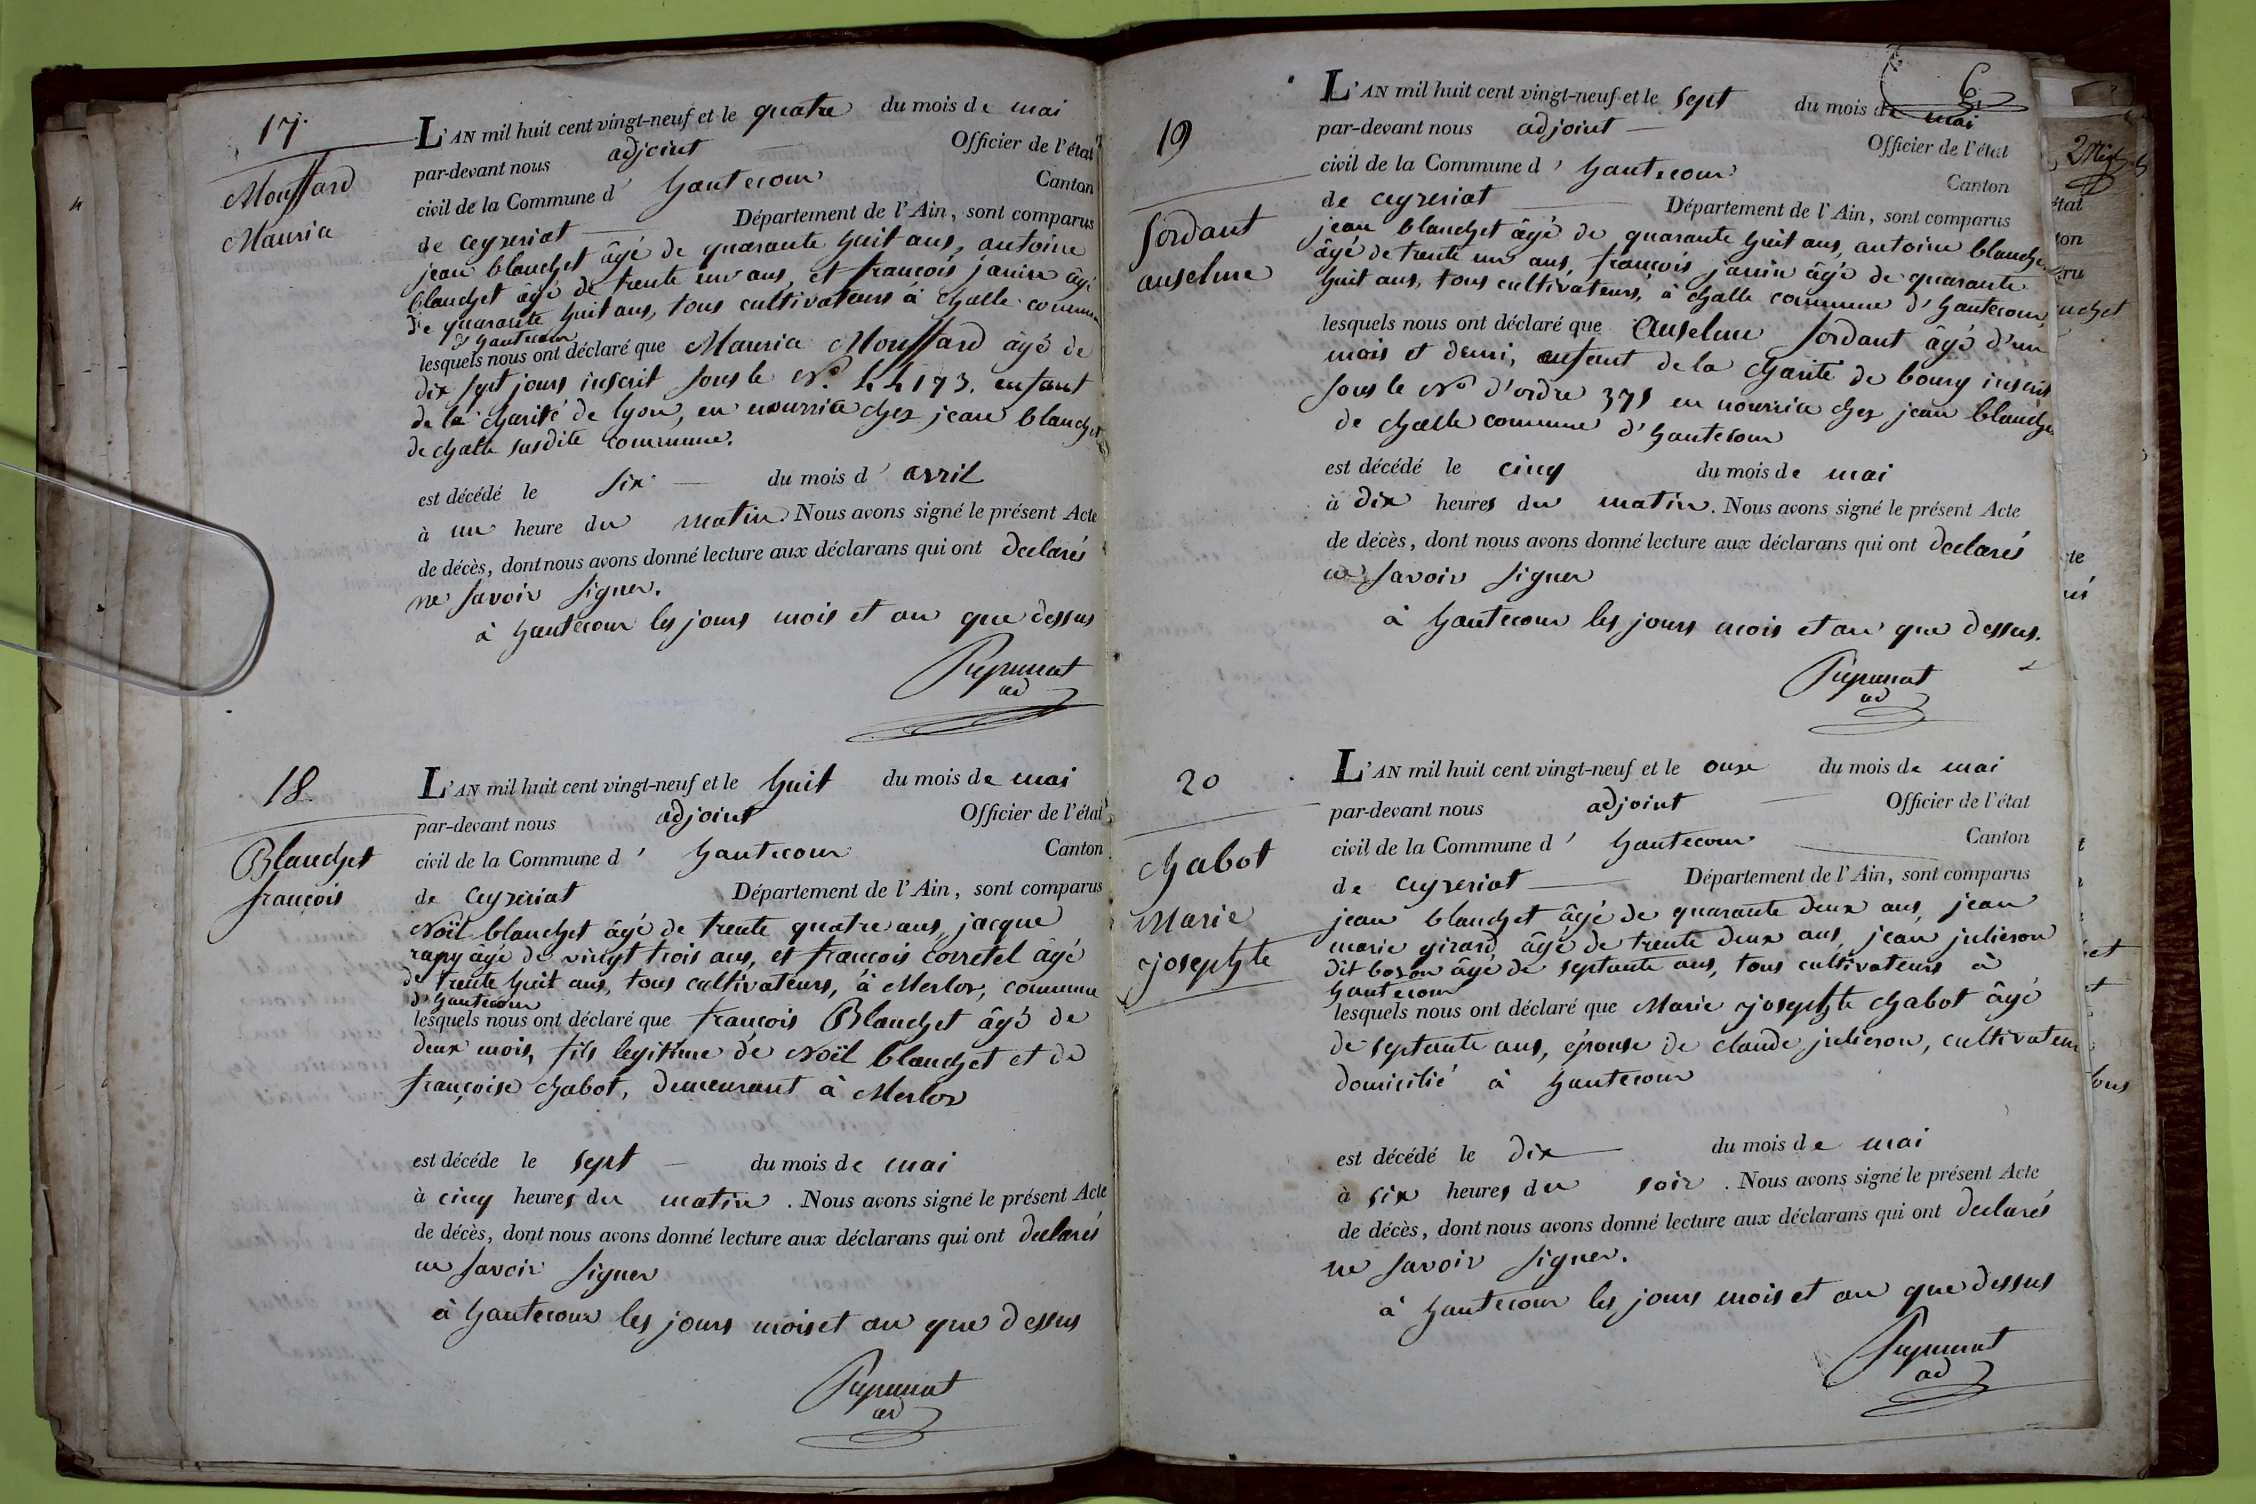 17.
Mouffard
Mauria
L'AN mil huit cent vingt-neuf et le quatre du mois de mai
par-devant nous adjoint Officier de l'état
civil de la Commune d' hautecour Canton
de ceyzeriat Département de l'Ain, sont comparus
jean blanchet âgé de quarante huit ans, antoine
blanchet âgé de trente un ans, et françois janin âgé
de quarante huit ans, tous cultivateurs à challe commune
d'hautecour
lesquels nous ont déclaré que Mauria Mouffard âgé de
dix sept jours inscrit sous le N.o 44173. enfant
de la charité de lyon, en nourrice chez jean blanchet
de challe susdite commune.
est décédé le six du mois d' avril
à un heure du matin. Nous avons signé le présent Acte
de décès, dont nous avons donné lecture aux déclarans qui ont declarés
ne savoir signer.
à hautecour les jours mois et an que dessus
ad
18
Blanchet
françois
L'AN mil huit cent vingt-neuf et le huit du mois de mai
par-devant nous adjoint Officier de l'état
civil de la Commune d' hautecour Canton
de ceyzeriat Département de l'Ain, sont comparus
Noël blanchet âgé de trente quatre ans, jacque
rapy âgé de vingt trois ans, et françois corretel âgé
de trente huit ans, tous cultivateurs, à Merlos, commune
d'hautecour
lesquels nous ont déclaré que françois Blanchet âgé de
deux mois, fils legitime de Noël blanchet et de
françoise chabot, demeurant à Merlos
est décédé le sept du mois de mai
à cinq heures du matin. Nous avons signé le présent Acte
de décès, dont nous avons donné lecture aux déclarans qui ont declarés
ne savoir signer
à hautecour les jours mois et an que dessus
ad
6
19
Sordant
anselme
L'AN mil huit cent vingt-neuf et le sept du mois de mai
par-devant nous adjoint Officier de l'état
civil de la Commune d' hautecour Canton
de ceyzeriat Département de l'Ain, sont comparus
jean blanchet âgé de quarante huit ans, antoine blanchet
âgé de trente un ans, françois janin âgé de quarante
huit ans, tous cultivateurs, à challe commune d'hautecour
lesquels nous ont déclaré que Anselme Sordant âgé d'un
mois et demi, enfant de la charité de bourg inscrit
sous le No d'ordre 371 en nourrice chez jean blanchet
de challe commune d'hautecour
est décédé le cinq du mois de mai
à dix heures du matin. Nous avons signé le présent Acte
de décès, dont nous avons donné lecture aux déclarans qui ont declarés
ne savoir signer
à hautecour les jours mois et an que dessus.
ad
20
chabot
Marie
josephte
L'AN mil huit cent vingt-neuf et le onze du mois de mai
par-devant nous adjoint Officier de l'état
civil de la Commune d' hautecour Canton
de ceyzeriat Département de l'Ain, sont comparus
jean blanchet âgé de quarante deux ans, jean
marie girard âgé de trente deux ans, jean julieron
dit bozon âgé de septante ans, tous cultivateurs à
hautecour
lesquels nous ont déclaré que Marie josephte chabot âgé
de septante ans, épouse de claude julieron, cultivateur
domicilié à hautecour
est décédé le dix du mois de mai
à six heures du soir. Nous avons signé le présent Acte
de décès, dont nous avons donné lecture aux déclarans qui ont declarés
ne savoir signer.
à hautecour les jours mois et an que dessus
ad